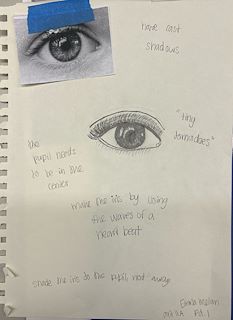 have cast
shadows
"tiny
tornadoes"
the
pupil needs
to be in the
center
make the iris by using
the waves of a
heart beat
shade the iris to the pupil not away
Pd. 1